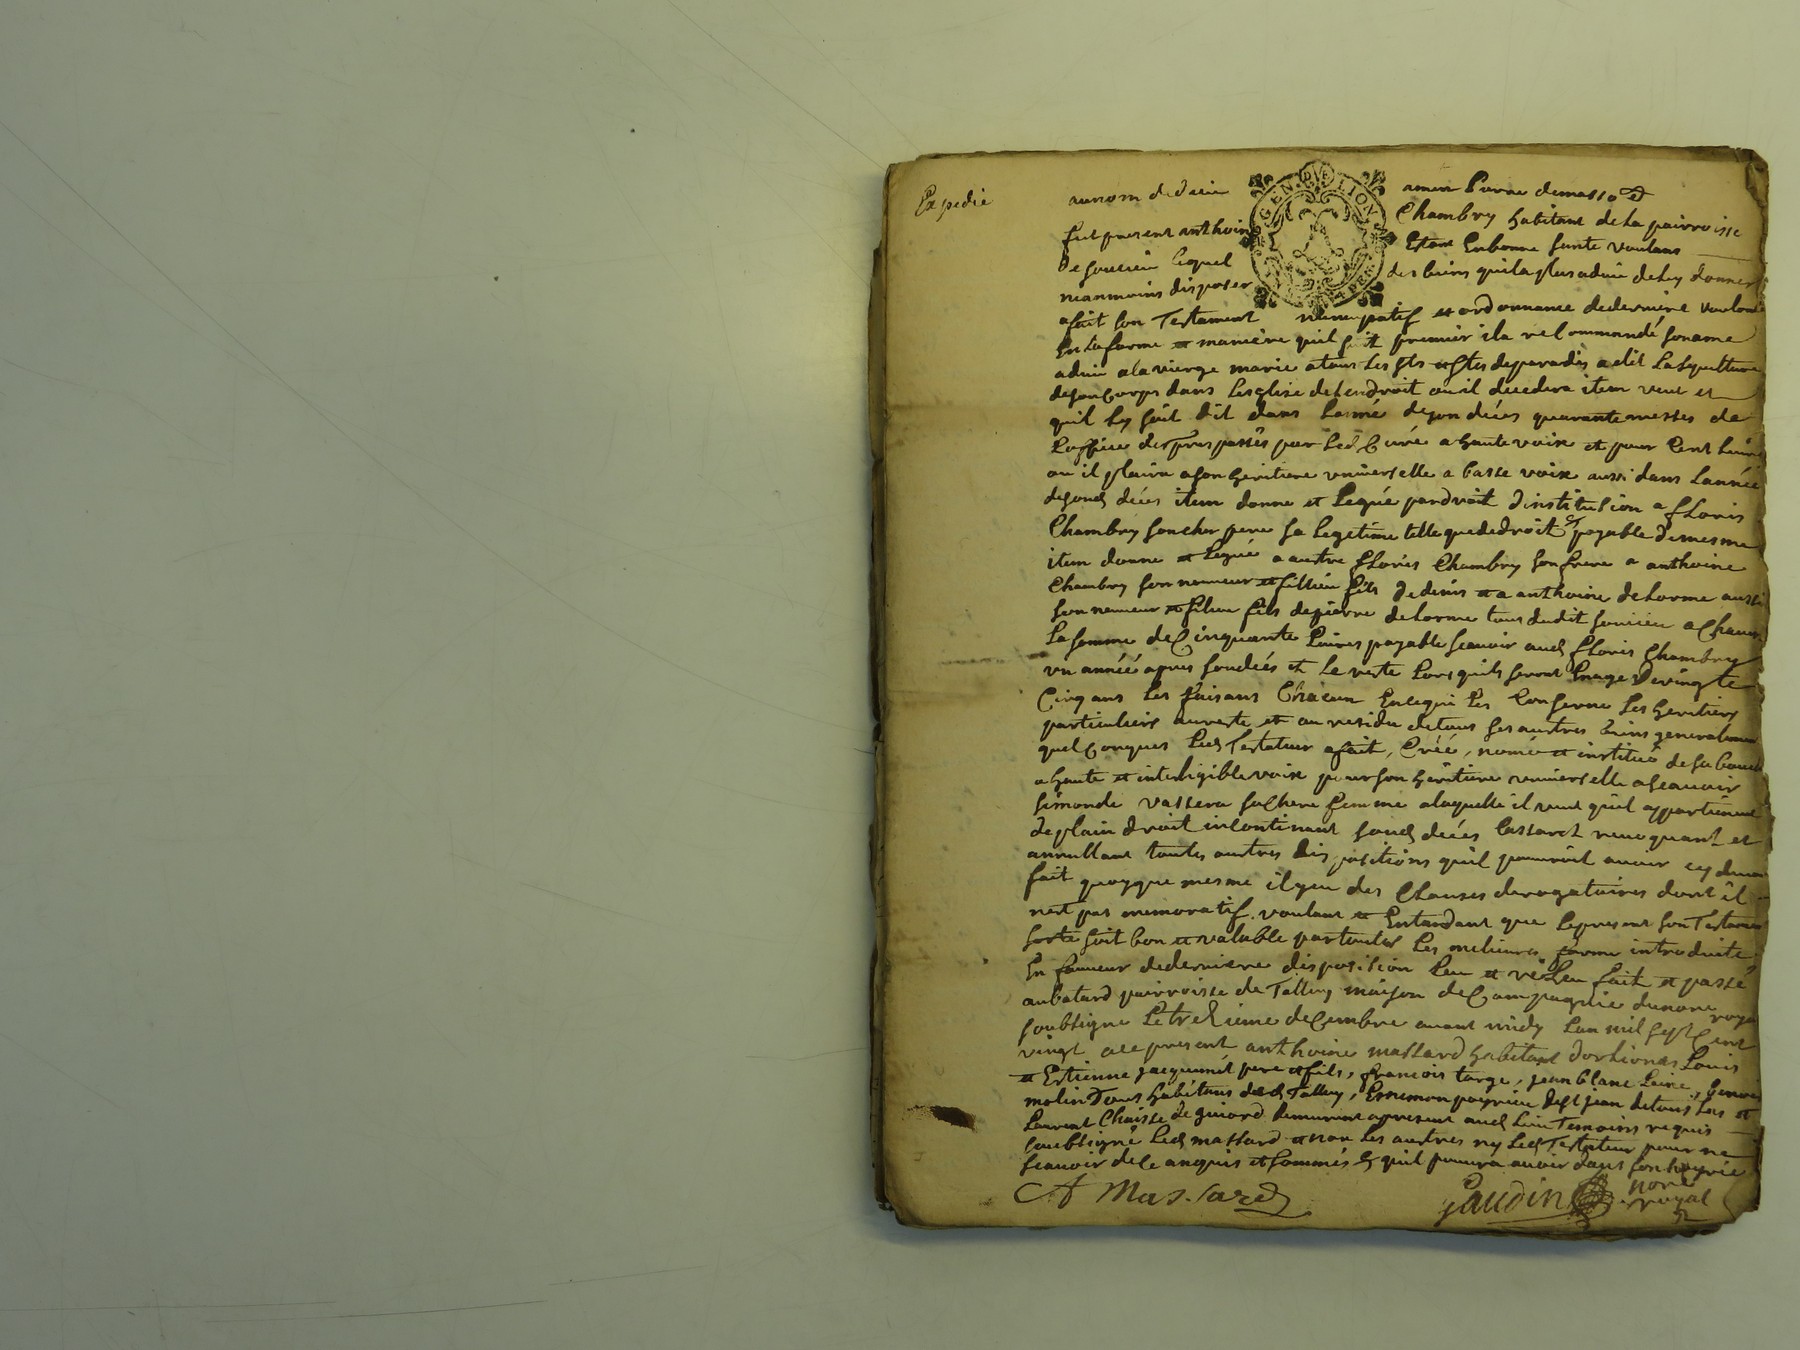 Expedie
au nom de dieu amen Pierre demasso
fut present anthoine Chambry habitant de la parroisse
de soucieu lequel Estant En bonne sante voulans
neanmoins disposer des biens quil a plu a dieu de luy donner
a fait son Testament nuncupatif et ordonnance de derniere volonte
En la forme et maniere quil suit premier il a recommandé son ame
a dieu a la vierge marie a tous les sts et stes de paradis a elit la sepulture
de son Corps dans leglise de lendroit ou il decedera item veut et
quil soit dit dans lanné de son décés quarante messes de
Loffice des trespassés par led Curé a haute voix et pour Cent
ou il plaira a son heritiere universelle a basse voix aussi dans Lannée
de sond décés item donne et Legué par droit dinstitution a floris
Chambry son cher pere sa Legitime telle que de droit payable de mesme
item donne et Legué a autre floris Chambry son frere a anthoine
Chambry son neuveur et fillieu fils de denis et a anthoine delorme aussi
son neuveur et filieu fils de pierre delorme tous dudit soucieu a Chacun
La somme de Cinquante Livres payable scavoir aud floris Chambry
un année apres son décés et le reste Lors quils seront En age de vingte
Cinq ans les faisans Chacun En ce qui les Conserne ses heritiers
particuliers au reste et au residu de tous ses autres biens generalement
quelconques Led Testateur a fait, Créé, nomé et institué de sa bouche
a haute et inteligible voix pour son héritiere universelle a scavoir
simonde vassera sa chere femme a laquelle il veut quil appartienne
de plain droit incontinant sond décés Cassant revoquant et
annullant toutes autres dispositions quil pourroit avoir cy devant
fait quoyque mesme il y eu des Clauses derogatoires dont il
nest pas memoratif. voulant et Entandant que le present son Testament
sorte soit bon et valable par toutes les melieures forme introduite
En faveur de derniere disposition Leu et releu fait et passé
au batard parroisse de Talluy maison de Campagnie du nore royal
soubsigne Le treizieme decembre avant midy Lan mil sept Cent
vingt a ce present anthoine massard habitant dorlienas Louis
et Estienne jacquemet pere et fils, francois targe, jean blanc Laine, benoit
molin Tous habitans dud Talluy, Ennemon peyrieu de st jean de tous las et
Laurent Chaisse de givord demeurant a present aud lieu Temoins requis
soubsigné Led massard et non les autres ny led Testateur pour ne
scavoir de Ce anquis et sommés
A Massard
Gaudin nore royal